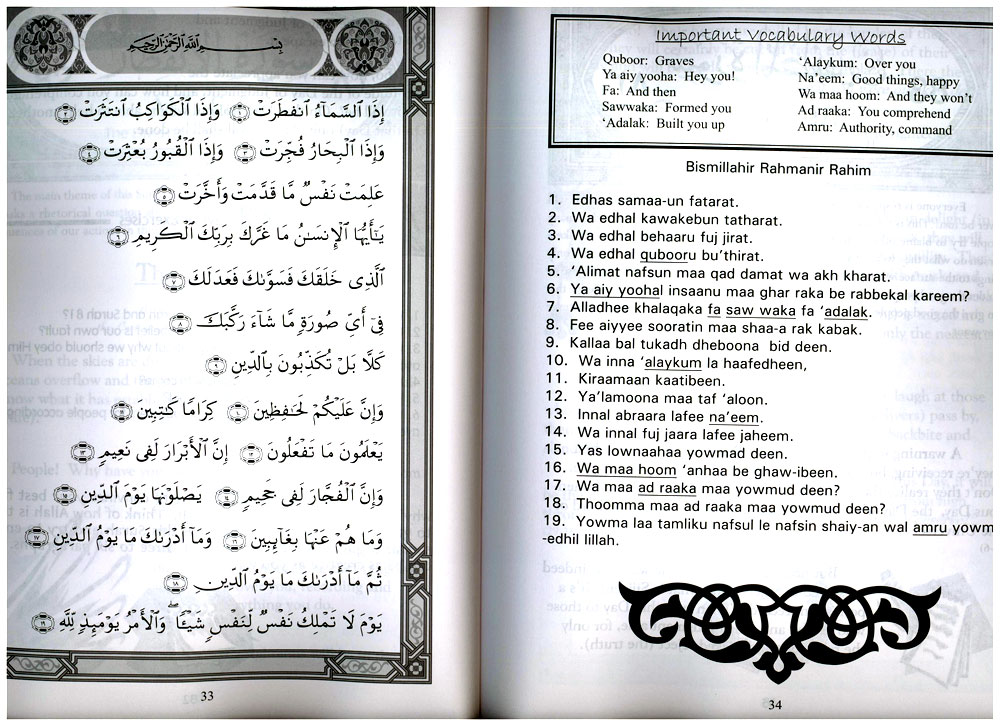 بِسْمِ اللَّهِ الرَّحْمَٰنِ الرَّحِيمِ
إِذَا السَّمَاءُ انفَطَرَتْ ١ وَإِذَا الْكَوَاكِبُ انتَثَرَتْ ٢
وَإِذَا الْبِحَارُ فُجِّرَتْ ٣ وَإِذَا الْقُبُورُ بُعْثِرَتْ ٤
عَلِمَتْ نَفْسٌ مَّا قَدَّمَتْ وَأَخَّرَتْ ٥
يَٰأَيُّهَا الْإِنسَٰنُ مَا غَرَّكَ بِرَبِّكَ الْكَرِيمِ ٦
الَّذِى خَلَقَكَ فَسَوَّىٰكَ فَعَدَلَكَ ٧
فِىٓ أَىِّ صُورَةٍ مَّا شَآءَ رَكَّبَكَ ٨
كَلَّا بَلْ تُكَذِّبُونَ بِالدِّينِ ٩
وَإِنَّ عَلَيْكُمْ لَحَٰفِظِينَ ١٠ كِرَامًا كَٰتِبِينَ ١١
يَعْلَمُونَ مَا تَفْعَلُونَ ١٢ إِنَّ الْأَبْرَارَ لَفِى نَعِيمٍ ١٣
وَإِنَّ الْفُجَّارَ لَفِى جَحِيمٍ ١٤ يَصْلَوْنَهَا يَوْمَ الدِّينِ ١٥
وَمَا هُمْ عَنْهَا بِغَآئِبِينَ ١٦ وَمَآ أَدْرَىٰكَ مَا يَوْمُ الدِّينِ ١٧
ثُمَّ مَآ أَدْرَىٰكَ مَا يَوْمُ الدِّينِ ١٨
يَوْمَ لَا تَمْلِكُ نَفْسٌ لِّنَفْسٍ شَيْـًٔا ۖ وَالْأَمْرُ يَوْمَئِذٍ لِّلَّهِ ١٩
33
Important Vocabulary Words
Quboor: Graves
Ya aiy yooha: Hey you!
Fa: And then
Sawwaka: Formed you
‘Adalak: Built you up
‘Alaykum: Over you
Na’eem: Good things, happy
Wa maa hoom: And they won’t
Ad raaka: You comprehend
Amru: Authority, command
Bismillahir Rahmanir Rahim
1. Edhas samaa-un fatarat.
2. Wa edhal kawakebun tatharat.
3. Wa edhal behaaru fuj jirat.
4. Wa edhal qubooru bu’thirat.
5. ‘Alimat nafsun maa qad damat wa akh kharat.
6. Ya aiy yoohal insaanu maa ghar raka be rabbekal kareem?
7. Alladhee khalaqaka fa saw waka fa ‘adalak.
8. Fee aiyyee sooratin maa shaa-a rak kabak.
9. Kallaa bal tukadh dheboona bid deen.
10. Wa inna ‘alaykum la haafedheen,
11. Kiraamaan kaatibeen.
12. Ya’lamoona maa taf ‘aloon.
13. Innal abraara lafee na’eem.
14. Wa innal fuj jaara lafee jaheem.
15. Yas lownaahaa yowmad deen.
16. Wa maa hoom ‘anhaa be ghaw-ibeen.
17. Wa maa ad raaka maa yowmud deen?
18. Thoomma maa ad raaka maa yowmud deen?
19. Yowma laa tamliku nafsul le nafsin shaiy-an wal amru yowm
-edhil lillah.
34